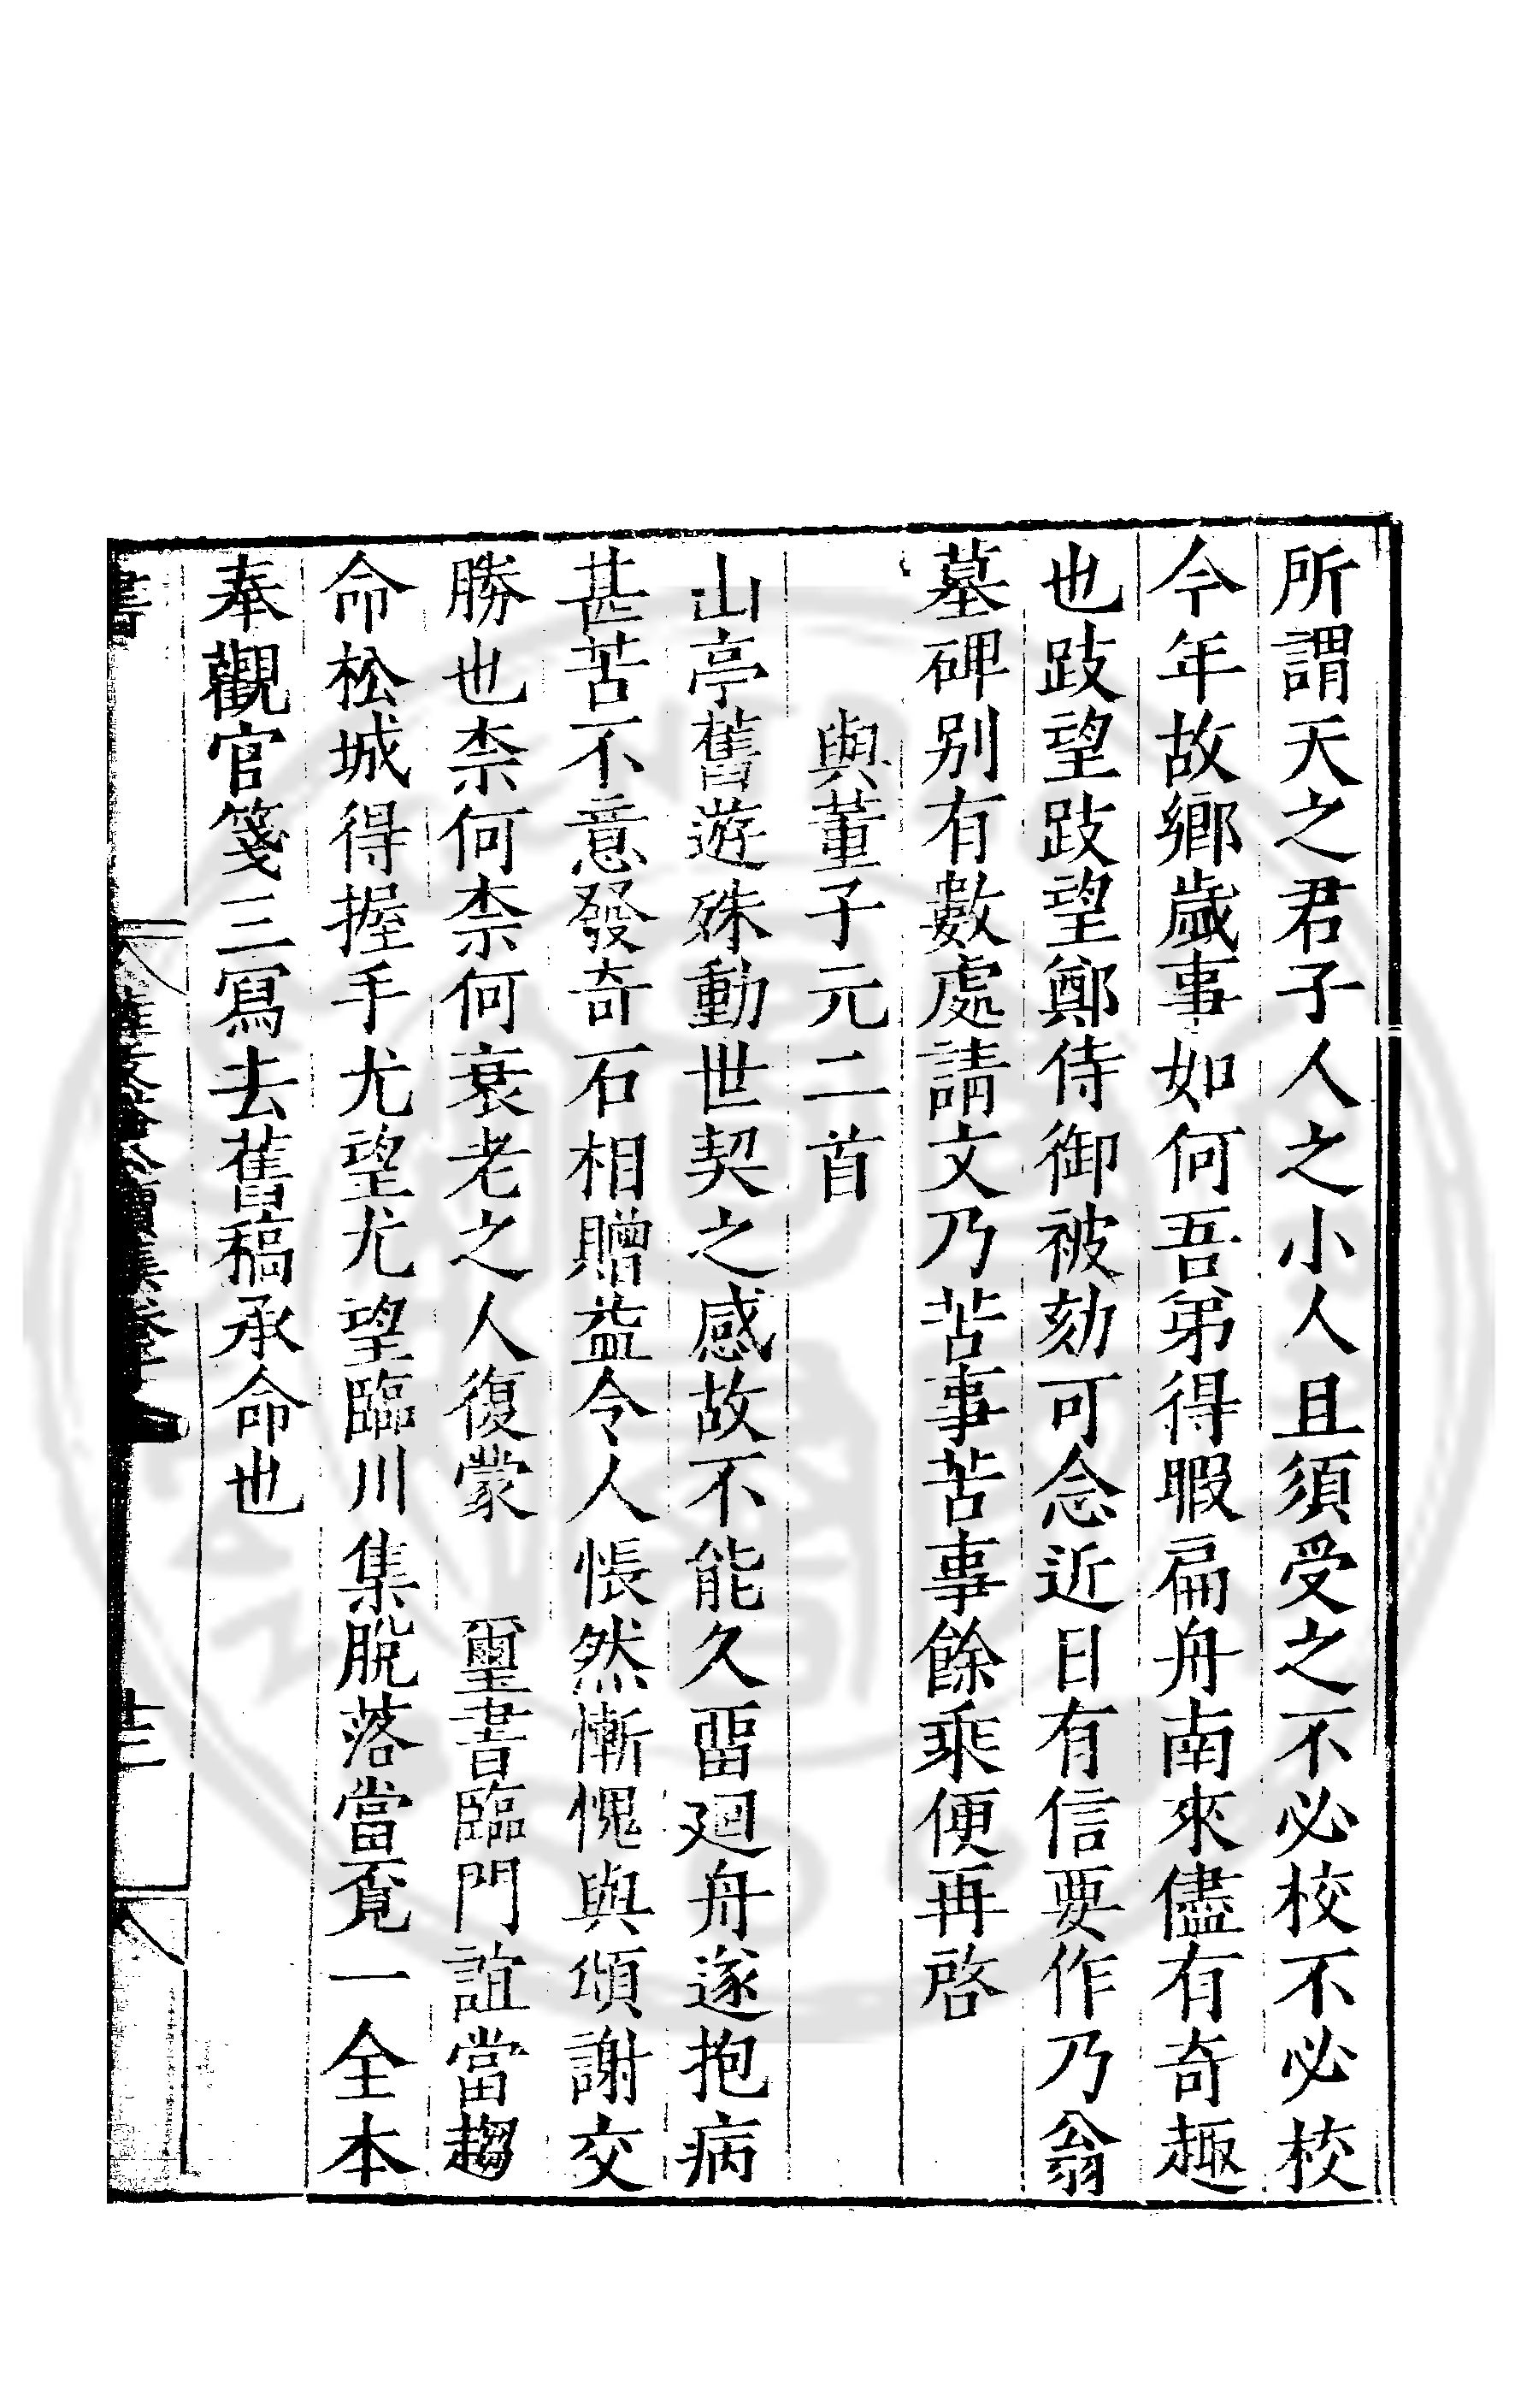 所謂天之君子人之小人且須受之不必校不必校
今年故鄉歲事如何吾弟得暇扁舟南來儘有奇趣
也跂望跂望鄭侍御被劾可念近日有信要作乃翁
墓碑别有數處請文乃苦事苦事餘乘便再啓
與董子元二首
山亭舊遊殊動世契之感故不能久畱廻舟遂抱病
甚苦不意發奇石相贈益令人悵然慚愧與頌謝交
勝也柰何柰何衰老之人復蒙 璽書臨門誼當趨
命松城得握手尤望尤望臨川集脫落當覔一全本
奉觀官箋三寫去舊稿承命也